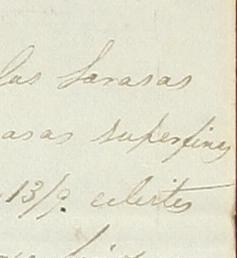 las Sarasas
asas superfinas
13/9. celestes